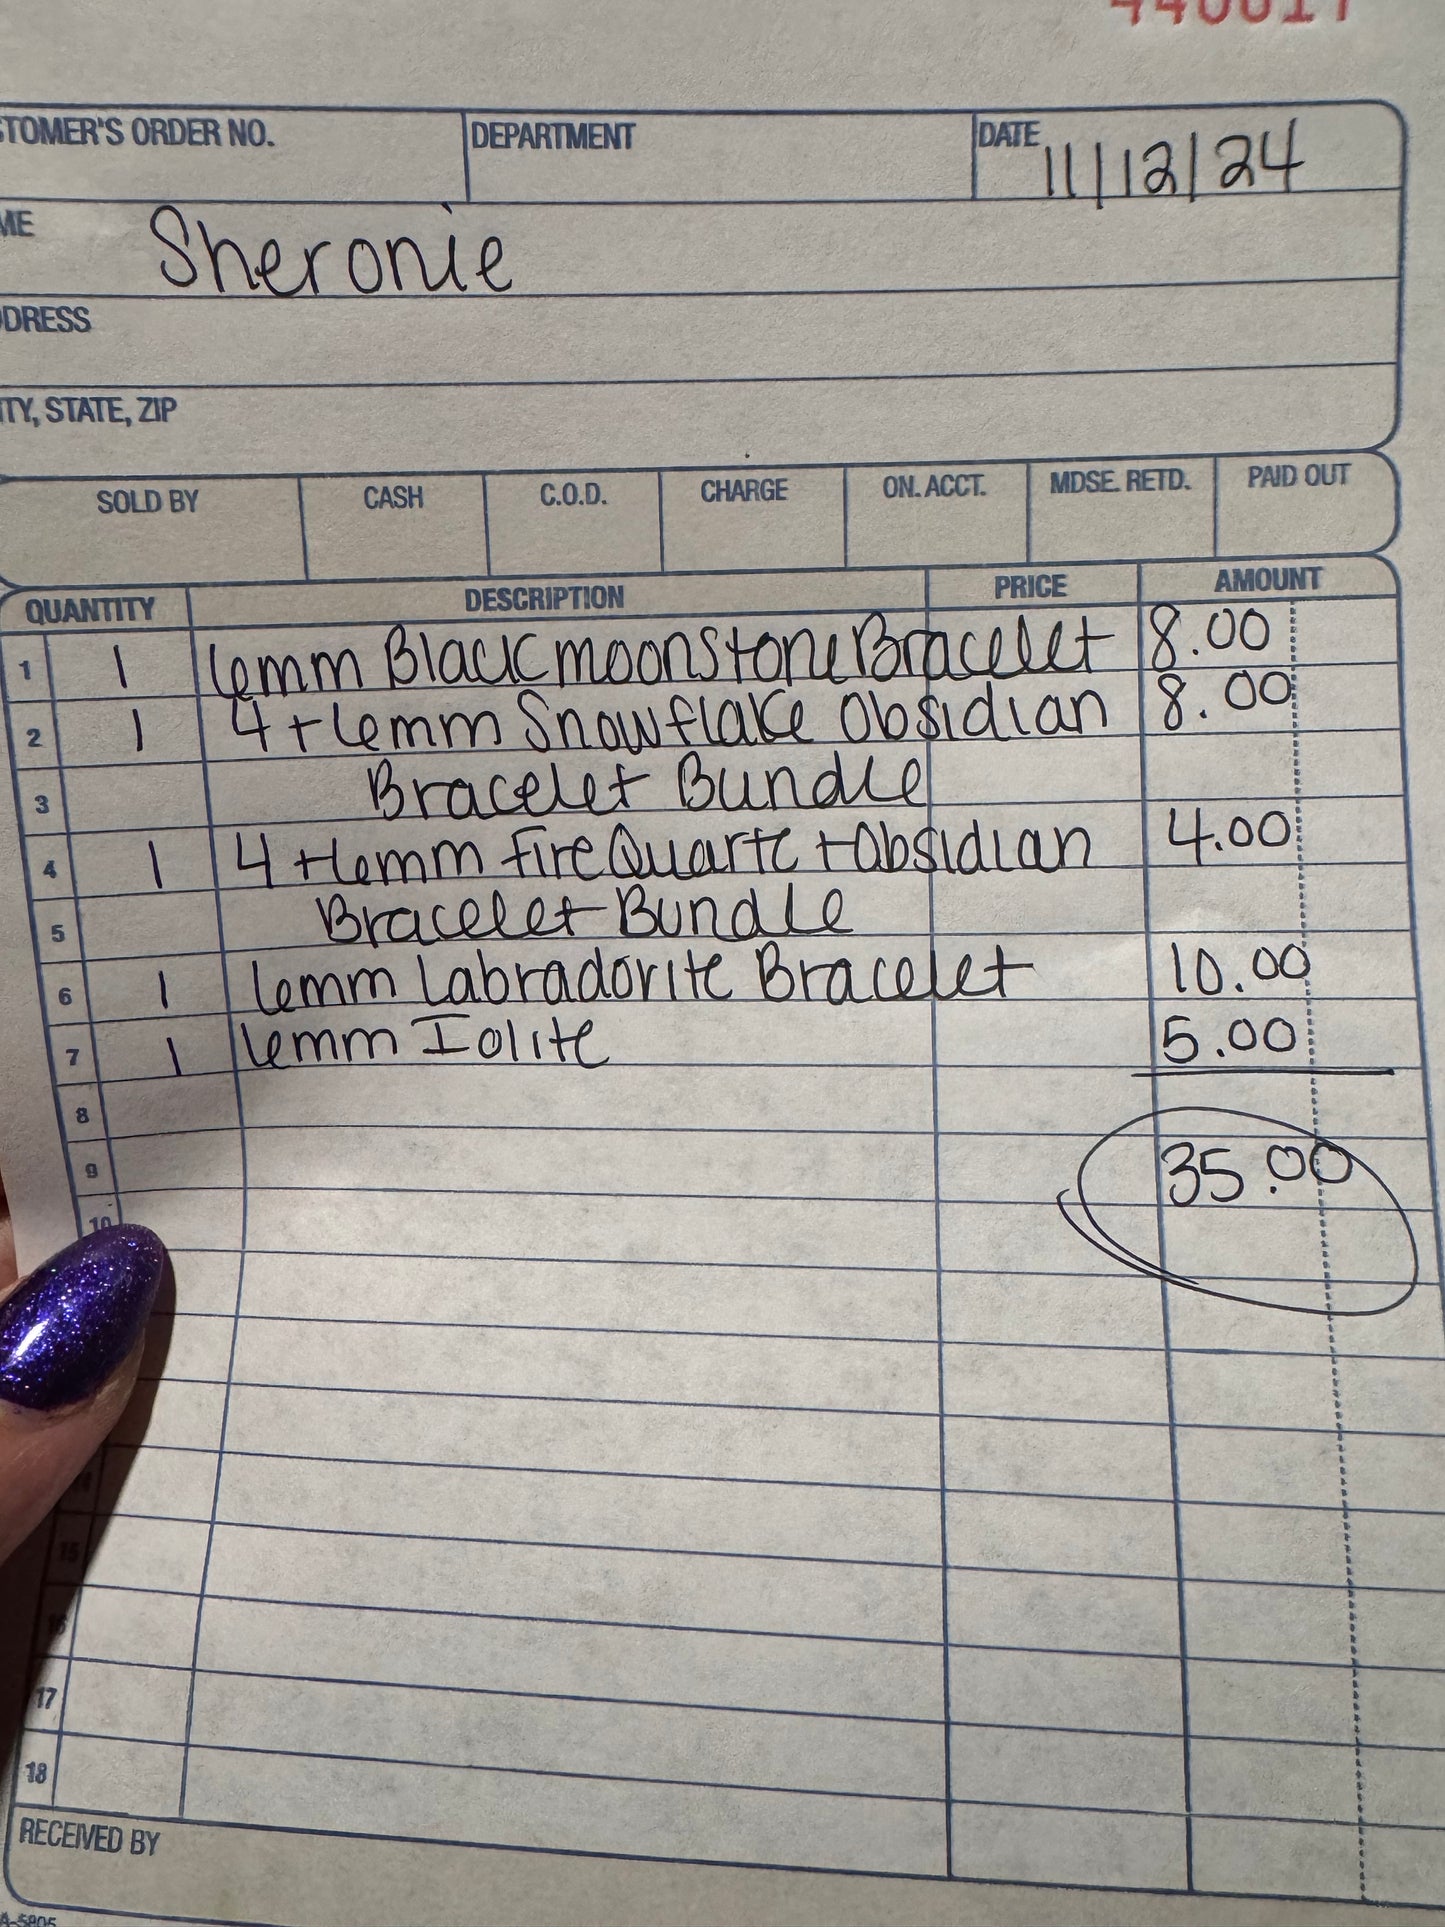 440017
STOMER'S ORDER NO. DEPARTMENT DATE 11/12/24
ME Sheronie
DRESS
ITY, STATE, ZIP
SOLD BY CASH C.O.D. CHARGE ON. ACCT. MDSE. RETD. PAID OUT
QUANTITY DESCRIPTION PRICE AMOUNT
1 1 6mm Black moonstone Bracelet 8.00
2 1 4+6mm Snowflake Obsidian 8.00
3 Bracelet Bundle
4 1 4+6mm Fire Quartz + Obsidian 4.00
5 Bracelet Bundle
6 1 6mm Labradorite Bracelet 10.00
7 1 6mm Iolite 5.00
8
9 35.00
10
15
16
17
18
RECEIVED BY
A-5805